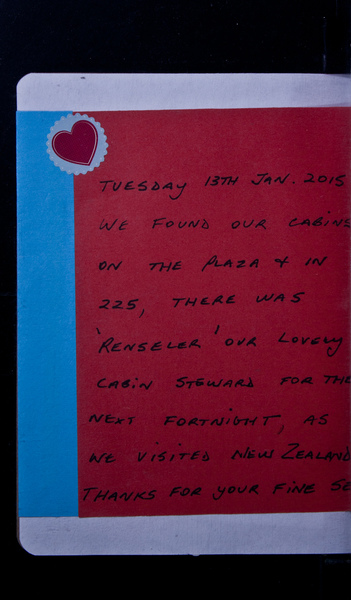 TUESDAY 13TH JAN. 2015
WE FOUND OUR CABINS
ON THE PLAZA & IN
225, THERE WAS
'RENSELER' OUR LOVELY
CABIN STEWARD FOR THE
NEXT FORTNIGHT, AS
WE VISITED NEW ZEALAND
THANKS FOR YOUR FINE SE